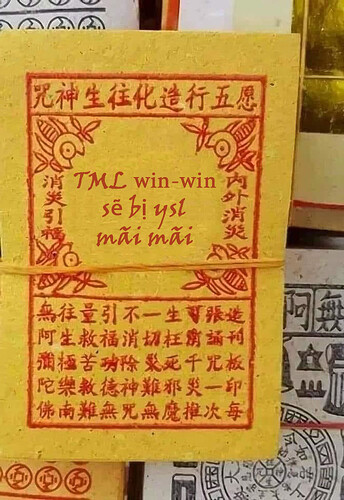 愿五行造化往生神咒
內外消災
消災引福
TML win-win
sẽ bị ysl
mãi mãi
造刊板印每
張誦咒一次
衛千災推
生枉死邪魔
一切災難無
不消除神咒
引福功德無
量救苦救難
往生極樂南
無阿彌陀佛
無
阿